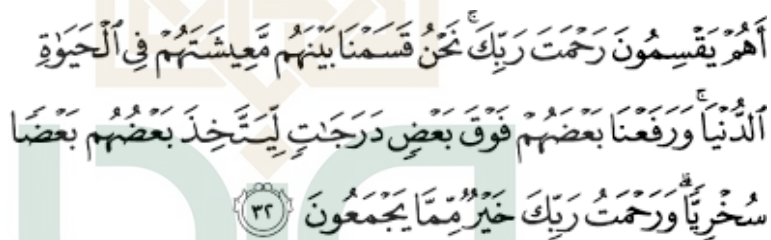 أَهُمْ يَقْسِمُونَ رَحْمَتَ رَبِّكَ ۚ نَحْنُ قَسَمْنَا بَيْنَهُم مَّعِيشَتَهُمْ فِي ٱلْحَيَوٰةِ
ٱلدُّنْيَا ۚ وَرَفَعْنَا بَعْضَهُمْ فَوْقَ بَعْضٍ دَرَجَٰتٍ لِّيَتَّخِذَ بَعْضُهُم بَعْضًا
سُخْرِيًّا ۗ وَرَحْمَتُ رَبِّكَ خَيْرٌ مِّمَّا يَجْمَعُونَ ٣٢